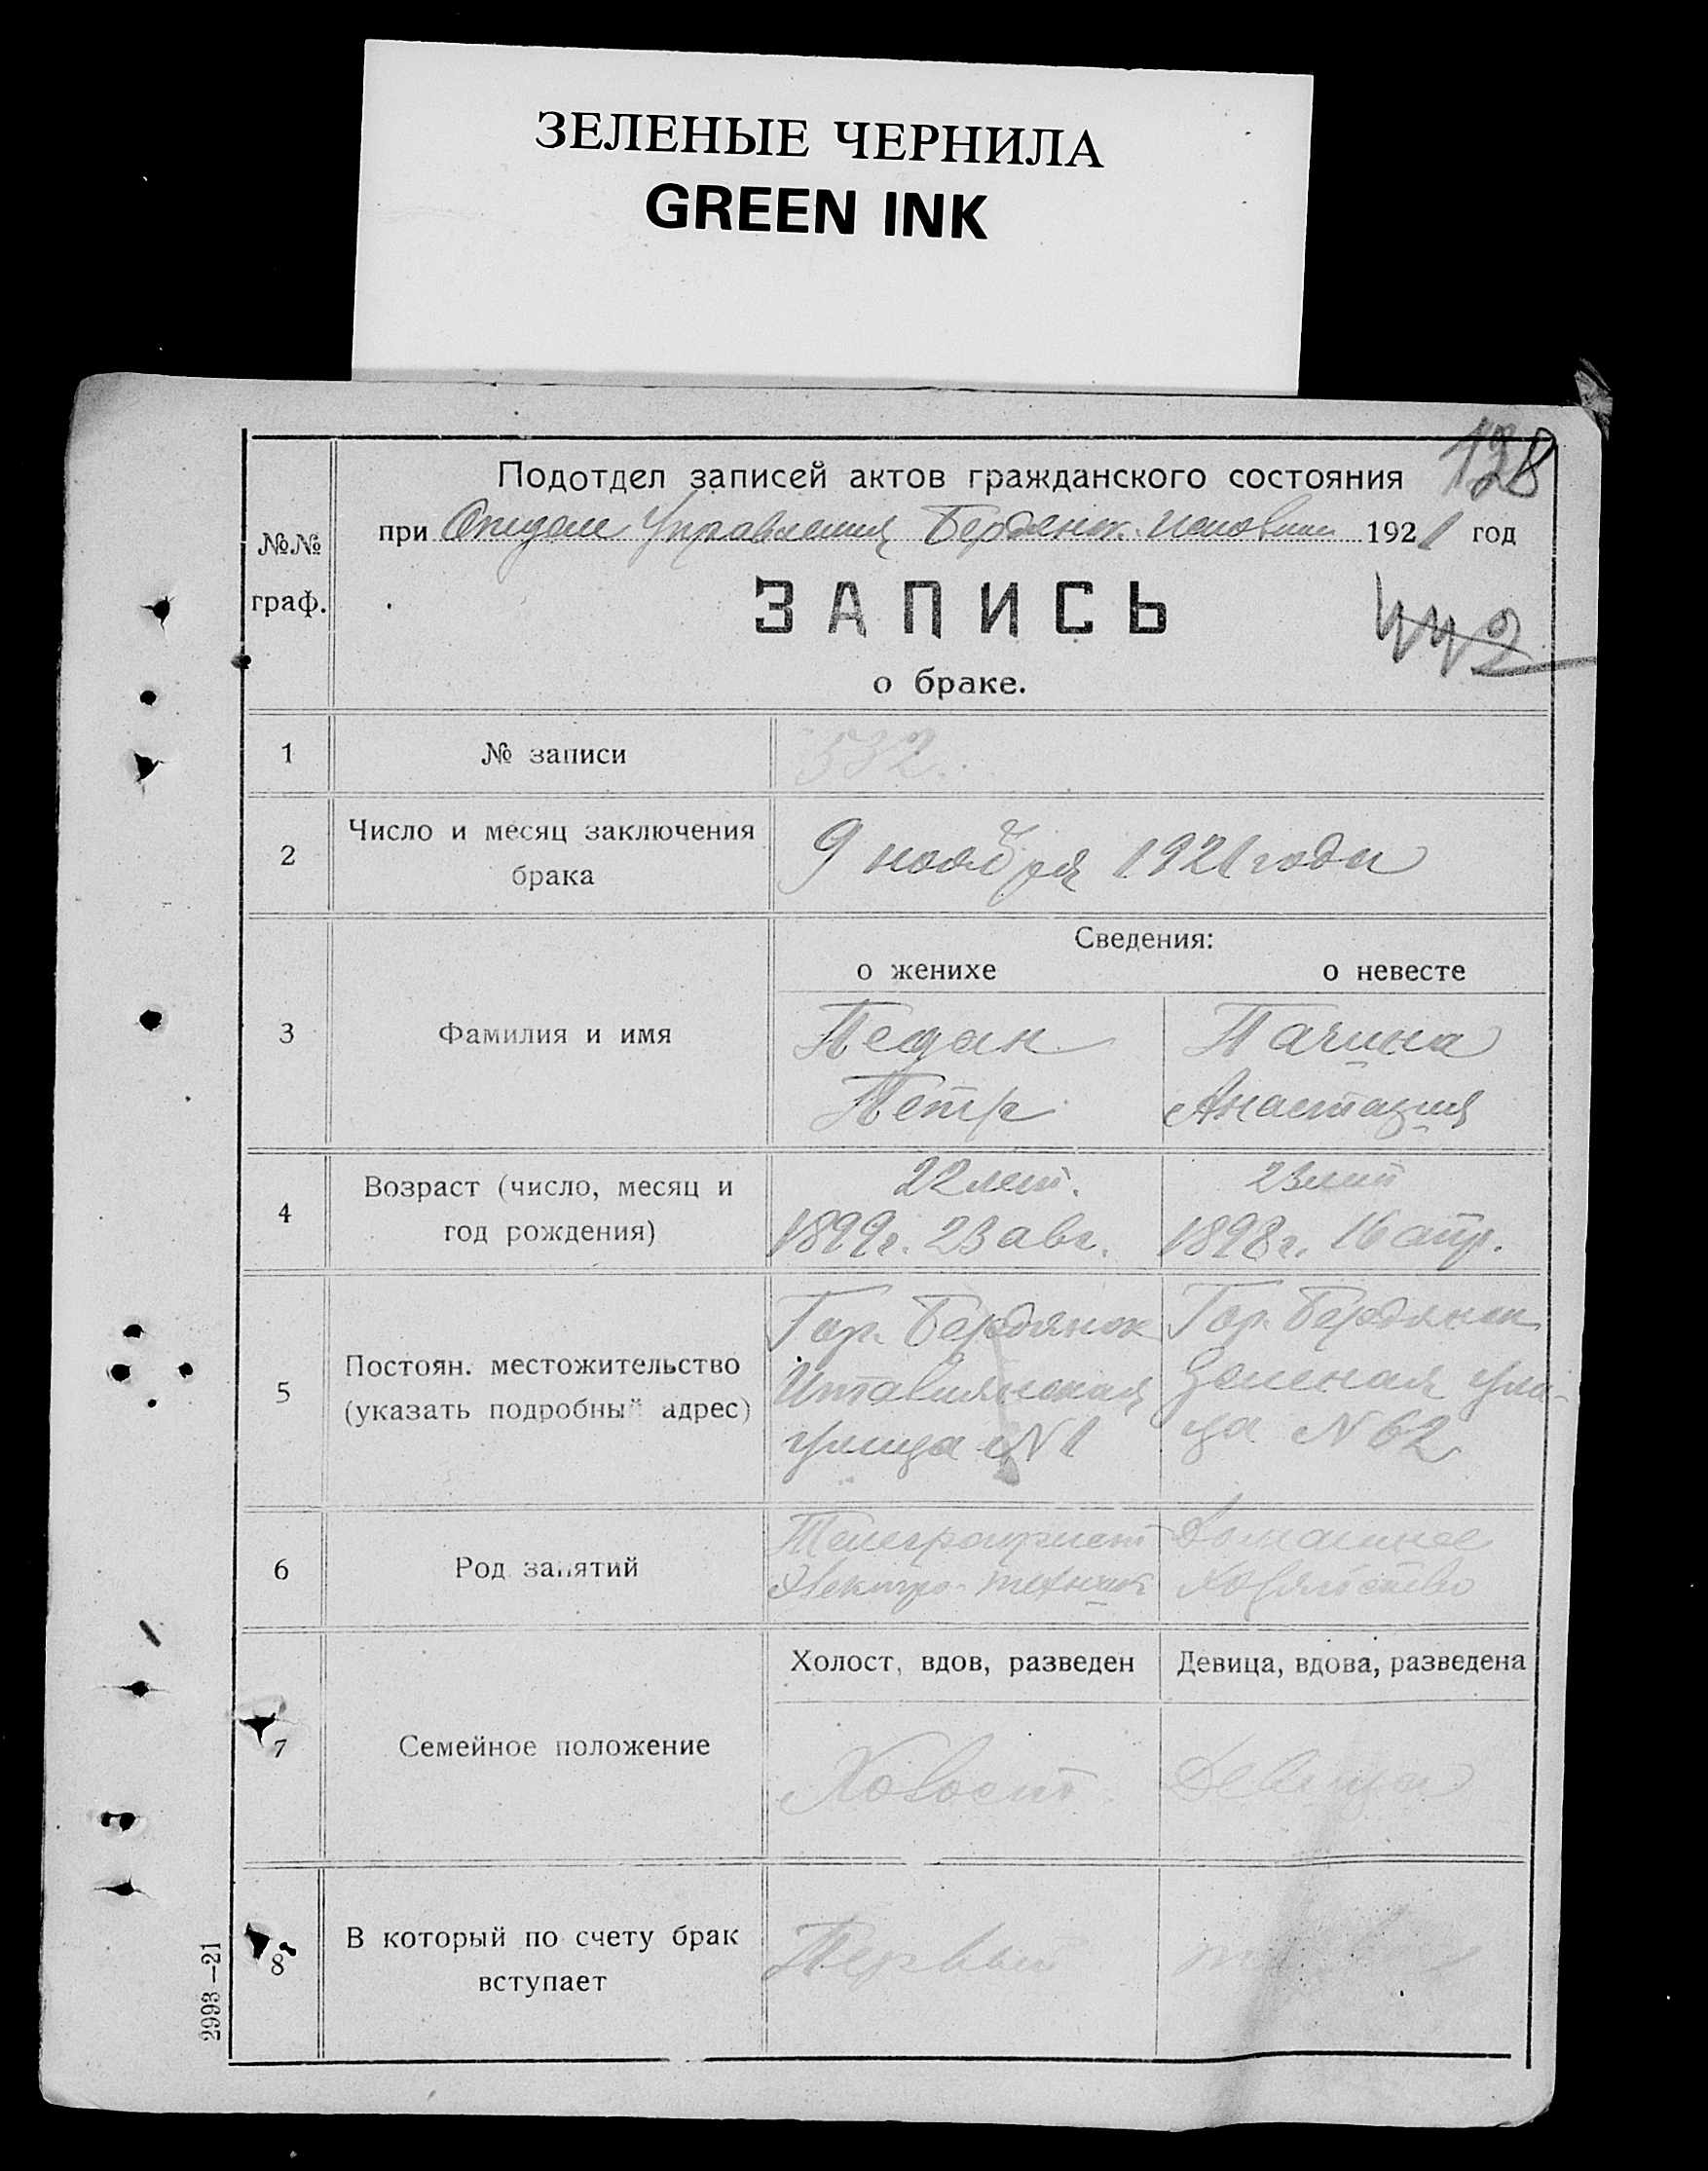 ЗЕЛЕНЫЕ ЧЕРНИЛА
GREEN INK
128
Подотдел записей актов гражданского состояния
при Отделе Управления Бердянск. 1921 год
№№ граф.
ЗАПИСЬ
442
о браке.
1 № записи 532.
2 Число и месяц заключения брака 9 ноября 1921 года
Сведения:
о женихе о невесте
3 Фамилия и имя Педан Пачина
Петр Анастазия
4 Возраст (число, месяц и год рождения) 22 лет. 23 лет
1899 г. 23 авг. 1898 г. 16 апр.
5 Постоян. местожительство (указать подробный адрес) Гор. Бердянск Гор. Бердянск
Итальянская Зеленая ули-
улица №1 ца №62
6 Род занятий Телеграфист Домашнее
Электро-техник хозяйство
Холост, вдов, разведен Девица, вдова, разведена
7 Семейное положение Холост Девица
8 В который по счету брак вступает Первый
2993–21